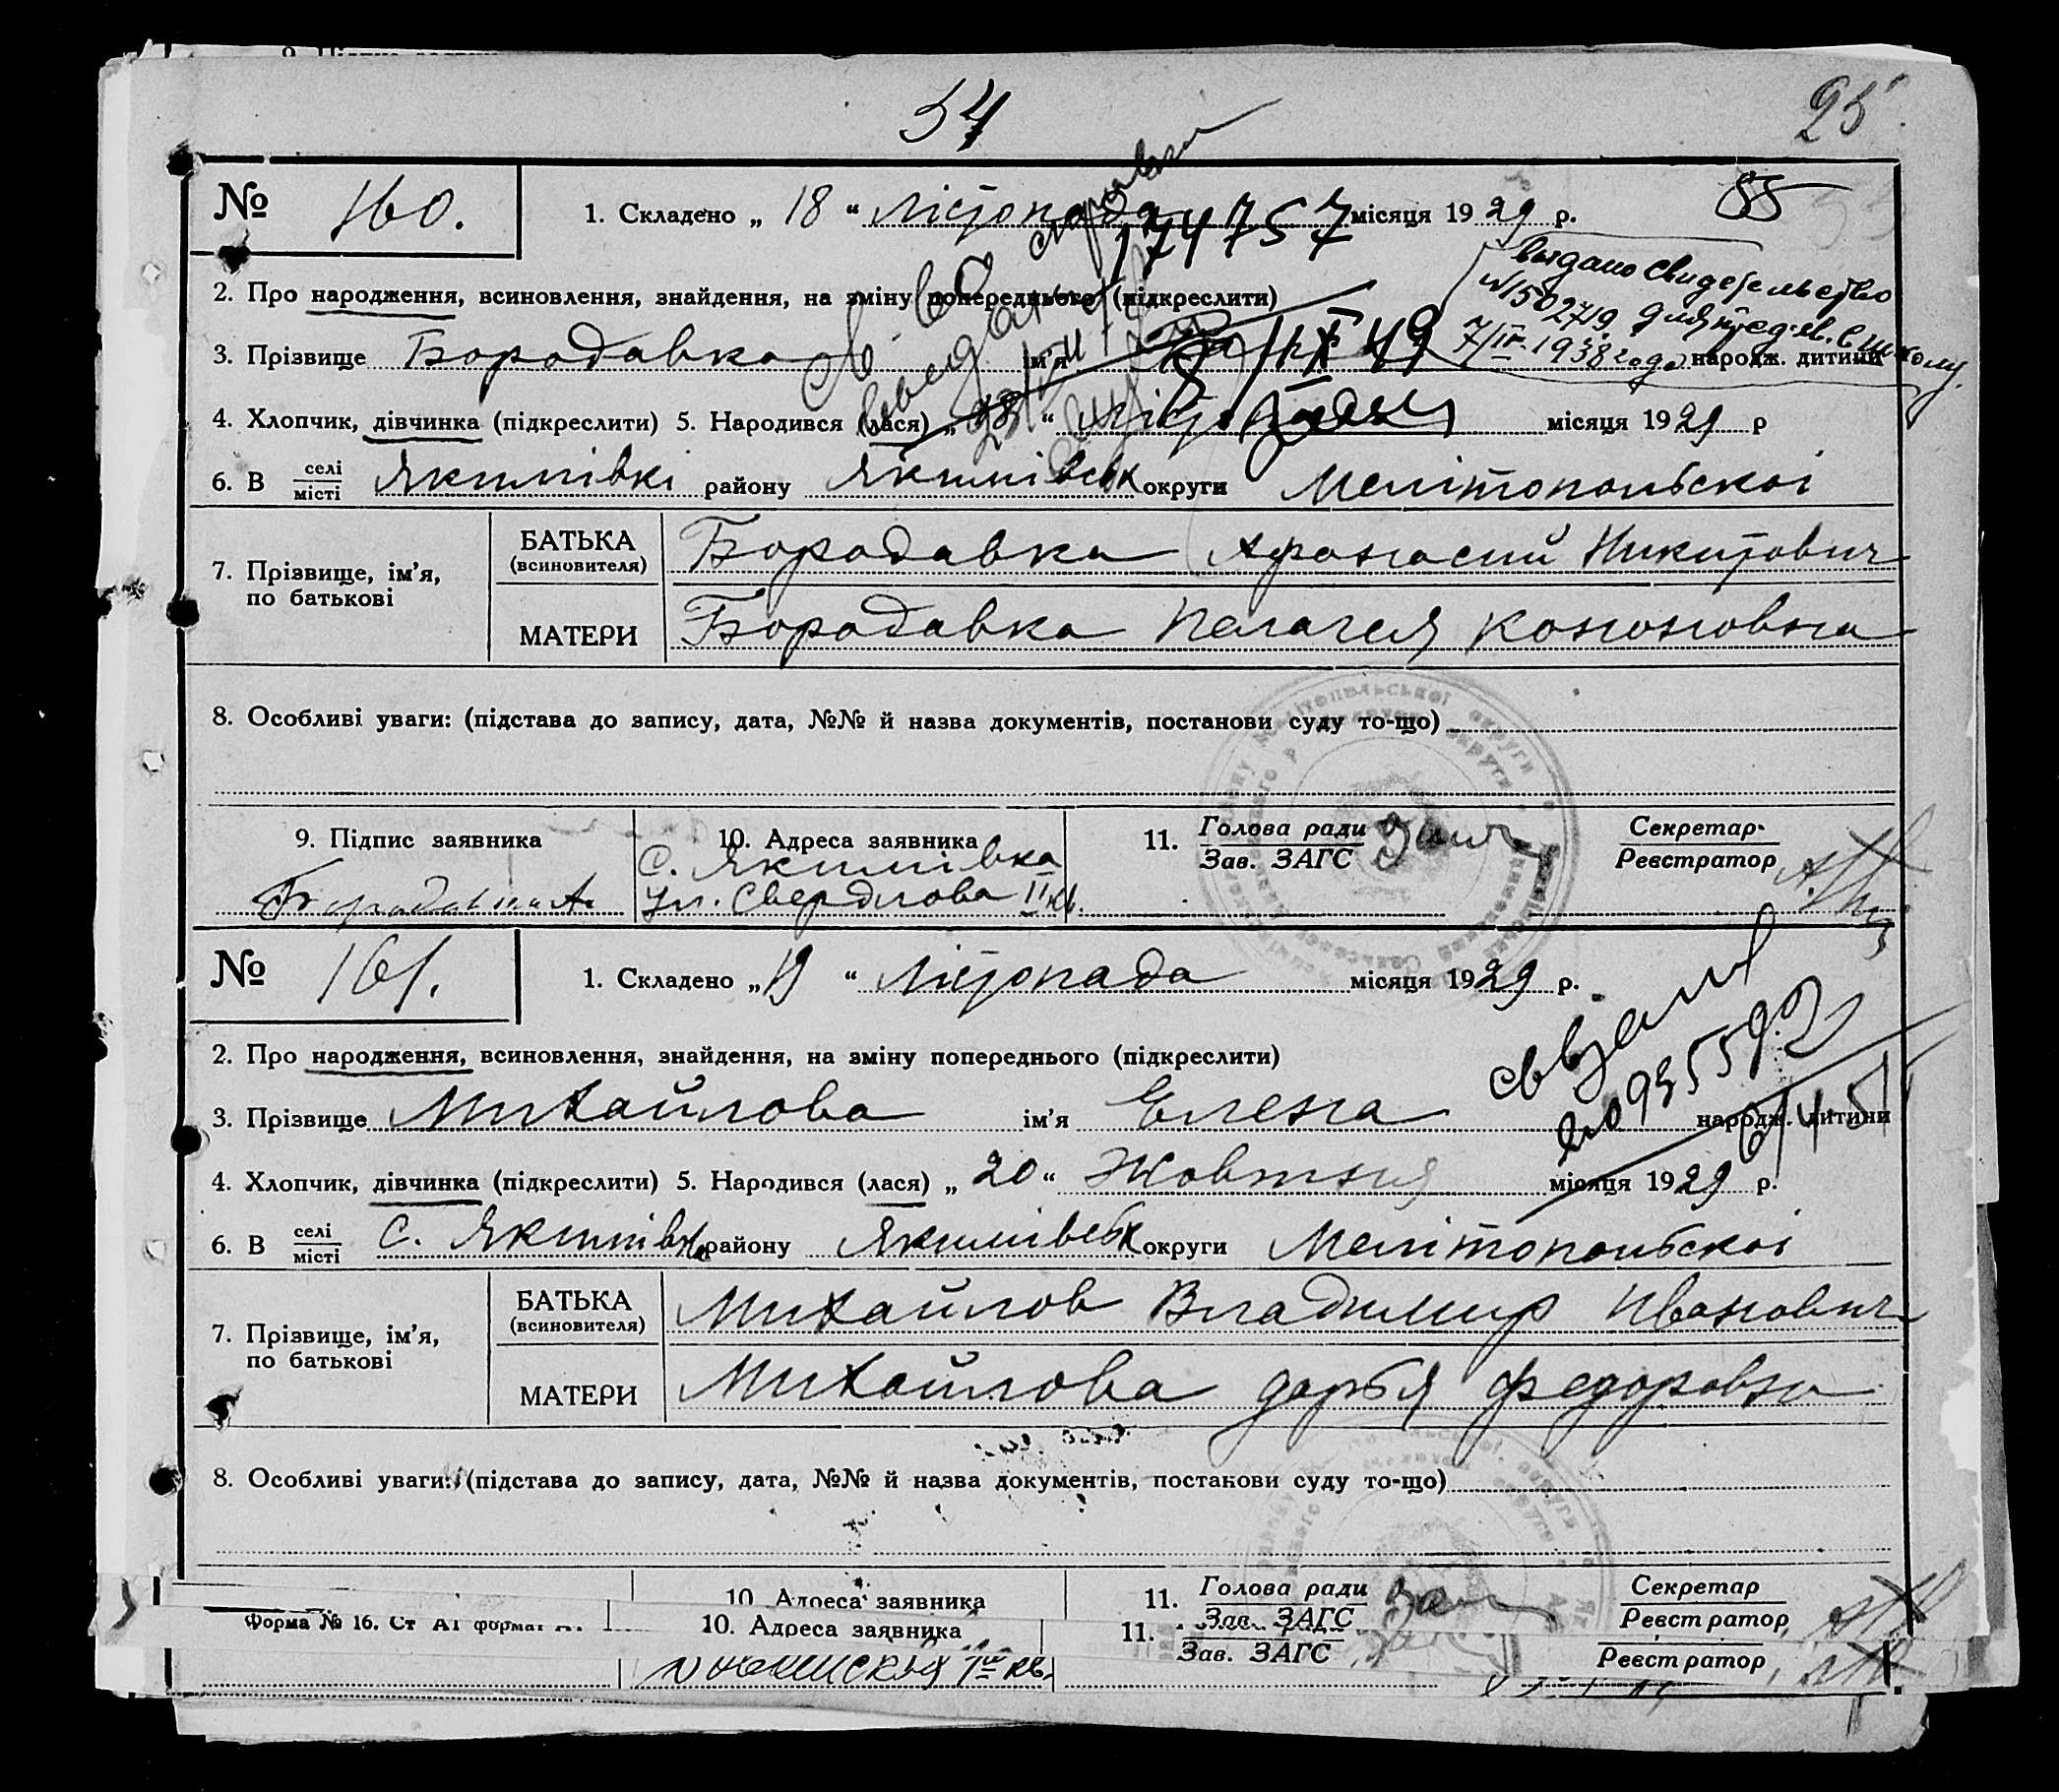 54
95
№ 160. 1. Складено „ 18 “ Лістопада місяця 1929 р.
55
174757
2. Про народження, всиновлення, знайдення, на зміну попереднього (підкреслити)
Выдано свидетельство
N 1502719 для пред-яв. в школу
7/IX-1938 года
3. Прізвище Бородавка ім'я народж. дитини
4. Хлопчик, дівчинка (підкреслити) 5. Народився (лася) „ “ місяця 1929 р
6. В селі місті Якимівкі району Якимівськ округи Мелітопольскоі
7. Прізвище, ім'я, по батькові
БАТЬКА (всиновителя) Бородавка Афонасий Никитович
МАТЕРИ Бородавка Пелагея Кононовна
8. Особливі уваги: (підстава до запису, дата, №№ й назва документів, постанови суду то-що)
9. Підпис заявника 10. Адреса заявника 11. Голова ради Зав. ЗАГС Секретар Реєстратор
с. Якимівка
ул. Свердлова II кв.
№ 161. 1. Складено „ 19 “ Лістопада місяця 1929 р.
2. Про народження, всиновлення, знайдення, на зміну попереднього (підкреслити)
3. Прізвище Михайлова ім'я Елена народж. дитини
4. Хлопчик, дівчинка (підкреслити) 5. Народився (лася) „ 20 “ Жовтня місяця 1929 р.
6. В селі місті с. Якимівка району Якимівськ округи Мелітопольскоі
7. Прізвище, ім'я, по батькові
БАТЬКА (всиновителя) Михайлов Владимир Иванович
МАТЕРИ Михайлова Дарья Федоровна
8. Особливі уваги: (підстава до запису, дата, №№ й назва документів, постанови суду то-що)
10. Адреса заявника 11. Голова ради Зав. ЗАГС Секретар Реєстратор
Форма № 16. 10. Адреса заявника 11. Зав. ЗАГС Реєстратор